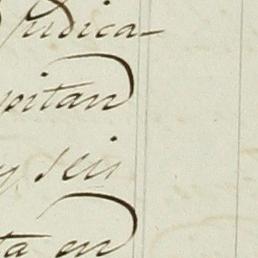 Judica-
pitan
y seis
ta en